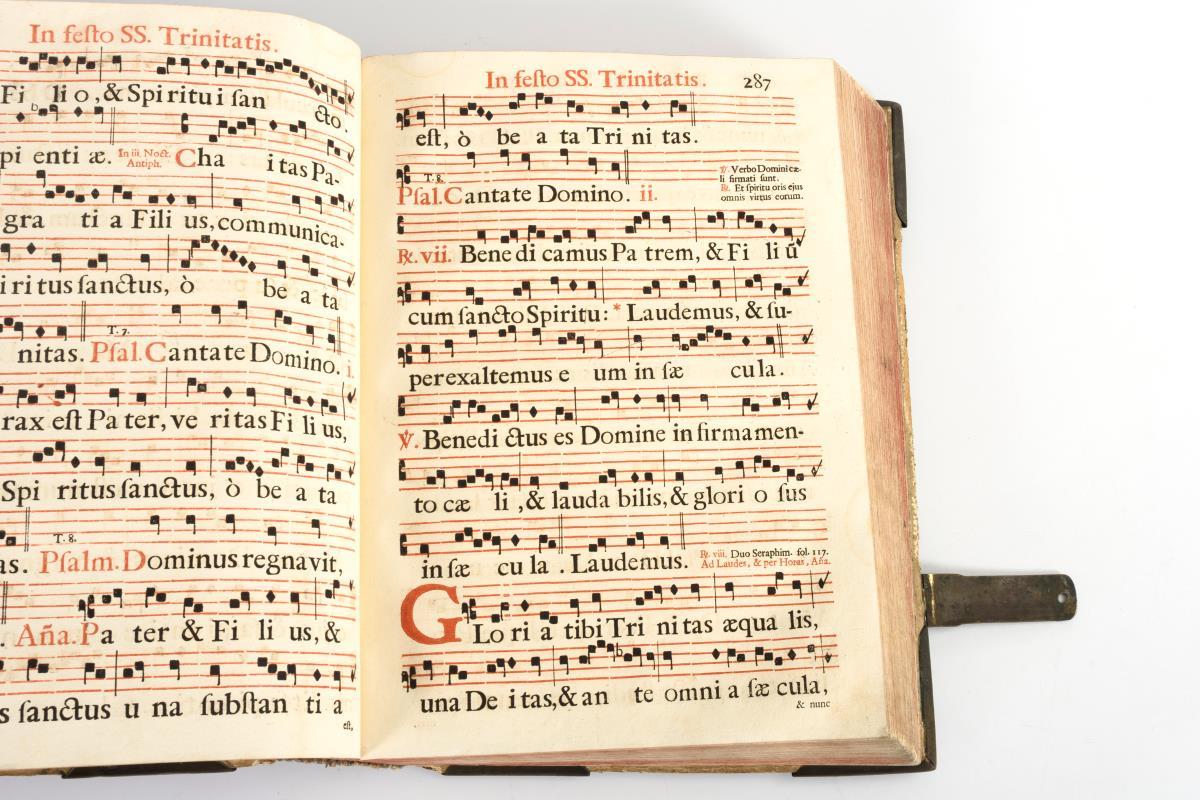 In feſto SS. Trinitatis.
Fi li o, & Spi ri tu i ſan cto.
pi enti æ. In iii. Noct. Antiph. Cha itas Pa-
gra ti a Fili us, communica-
i ri tus ſanctus, ò be a ta
T. 7.
nitas. Pſal. Cantate Domino. i.
rax eſt Pa ter, ve ritas Fi li us,
Spi ritus ſanctus, ò be a ta
T. 8.
as. Pſalm. Dominus regnavit,
Aña. Pa ter & Fi li us, &
s ſanctus u na ſubſtan ti a
eſt,
In feſto SS. Trinitatis. 287
eſt, ò be a ta Tri ni tas.
T. 8.
Pſal. Cantate Domino. ii.
℣. Verbo Domini cæ-
li firmati ſunt.
℟. Et ſpiritu oris ejus
omnis virtus eorum.
℟. vii. Bene di camus Pa trem, & Fi li ũ
cum ſancto Spiritu: * Laudemus, & ſu-
perexaltemus e um in ſæ cula.
℣. Benedi ctus es Domine in firmamen-
to cæ li, & lauda bilis, & glori o ſus
in ſæ cu la. Laudemus. ℟. viii. Duo Seraphim. fol. 117.
Ad Laudes, & per Horas, Aña.
GLo ri a tibi Tri nitas æqua lis,
una De itas, & an te omni a ſæ cula,
& nunc